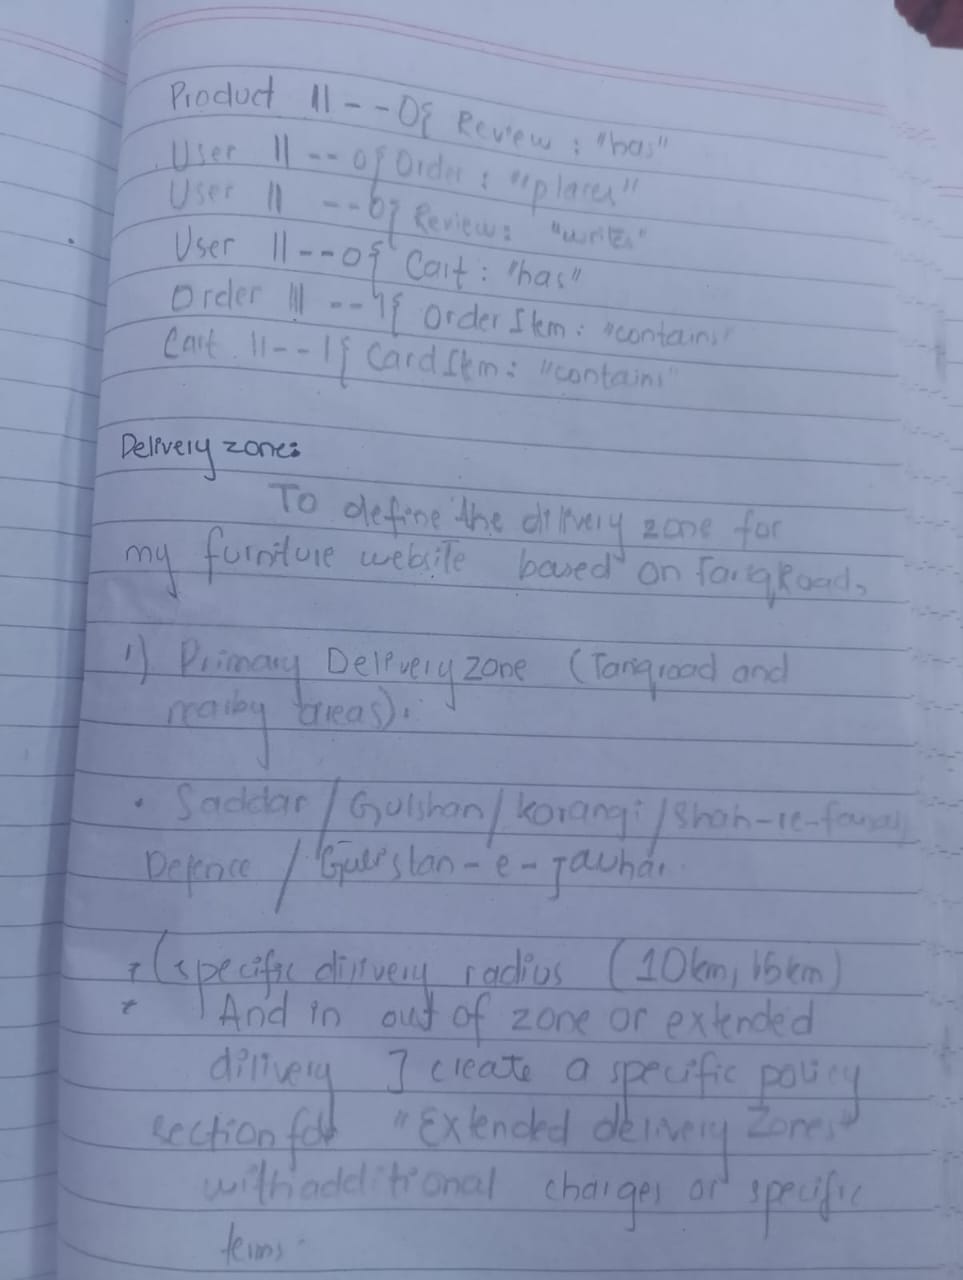 Product ||--O{ Review : "has"
User ||--o{ Order : "places"
User || --o{ Review: "writes"
User ||--o{ Cart : "has"
Order ||| --1{ Order Item : "contains"
Cart ||--1{ Card Item : "contains"
Delivery zone:
To define the dilivery zone for
my furniture website based on TariqRoad,
1) Primary Delivery zone (Tariqroad and
nearby areas).
• Saddar / Gulshan / korangi / Shah-re-faisal
Defence / Gulistan-e-Jauhar
* (specific dilivery radius (10km, 15km)
* And in out of zone or extended
dilivery I create a specific policy
section for "Extended delivery Zones"
with additional charges or specific
terms.